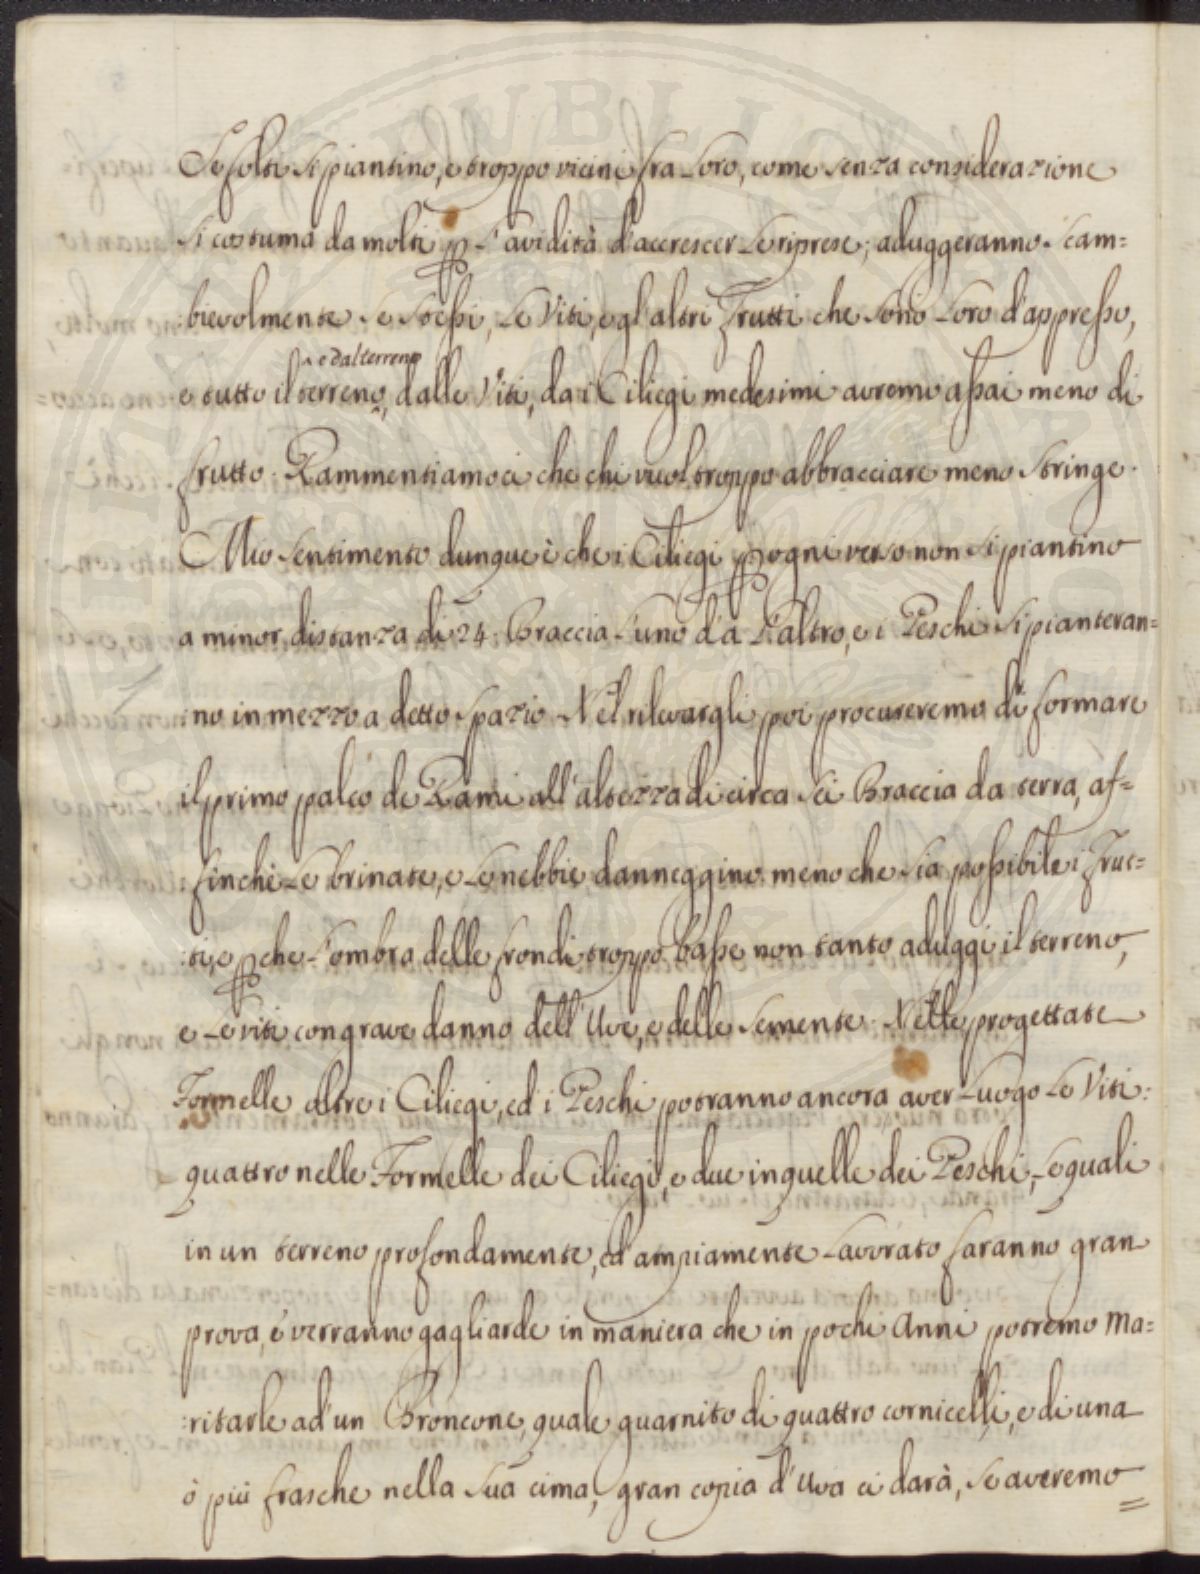 Se folti si piantino, e troppo vicini fra loro, come senza considerazione
si costuma da molti p l'avidità d'accrescer le riprese, aduggeranno scam=
:bievolmente se stessi, le Viti, e gl'altri Frutti che sono loro d'appresso,
^ e dal terreno
e tutto il terreno, dalle Viti, da i Ciliegi medesimi avremo assai meno di
frutto. Rammentiamoci che chi vuol troppo abbracciare meno stringe.
Mio sentimento dunque è che i Ciliegi p ogni verso non si piantino
a minor distanza di 24: Braccia l'uno da l'altro, e i Peschi si pianteran=
:no in mezzo a detto spazio. Nel rilevargli poi procureremo di formare
il primo palco de Rami all'altezza di circa sei Braccia da terra, af=
finche le brinate, e le nebbie danneggino meno che sia possibile i Frut=
:ti, e pche l'ombra delle frondi troppo basse non tanto aduggi il terreno,
e le viti con grave danno dell'Uve, e delle semente. Nelle progettate
Formelle oltre i Ciliegi, ed i Peschi potranno ancora aver luogo le Viti:
quattro nelle Formelle dei Ciliegi, e due in quelle dei Peschi, le quali
in un terreno profondamente, ed ampiamente lavorato faranno gran
prova, e verranno gagliarde in maniera che in pochi Anni potremo ma=
:ritarle ad un Broncone, quale guarnito di quattro cornicelli, e di una
ò più frasche nella sua cima, gran copia d'Uva ci darà, se averemo=
PUBLICA